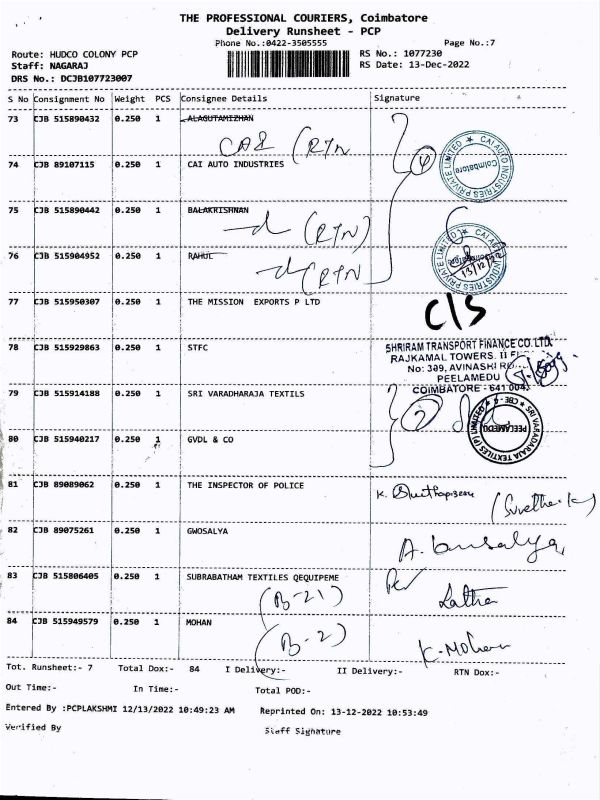 THE PROFESSIONAL COURIERS, Coimbatore
Delivery Runsheet - PCP
Phone No.:0422-3505555
Page No.:7
Route: HUDCO COLONY PCP
RS No.: 1077230
Staff: NAGARAJ
RS Date: 13-Dec-2022
DRS No.: DCJB107723007
S No Consignment No Weight PCS Consignee Details Signature
73 CJB 515890432 0.250 1 ALAGUTAMIZHAN
CAI (RTN
74 CJB 89107115 0.250 1 CAI AUTO INDUSTRIES
4
CAI AUTO INDUSTRIES PRIVATE LIMITED
Coimbatore
75 CJB 515890442 0.250 1 BALAKRISHNAN
(RTN)
76 CJB 515904952 0.250 1 RAHUL
(RTN
CAI AUTO INDUSTRIES PRIVATE LIMITED
13/12/22
77 CJB 515950307 0.250 1 THE MISSION EXPORTS P LTD
C/S
78 CJB 515929863 0.250 1 STFC
SHRIRAM TRANSPORT FINANCE CO. LTD.
RAJKAMAL TOWERS. II
No: 309, AVINASHI
PEELAMEDU
COIMBATORE - 641 004
79 CJB 515914188 0.250 1 SRI VARADHARAJA TEXTILS
2
SRI VARADARAJA TEXTILES (P) LIMITED
PEELAMEDU
CBE-4
80 CJB 515940217 0.250 1 GVDL & CO
81 CJB 89089062 0.250 1 THE INSPECTOR OF POLICE
K.
82 CJB 89075261 0.250 1 GWOSALYA
A.
83 CJB 515806405 0.250 1 SUBRABATHAM TEXTILES QEQUIPEME
(B-21)
Latha
84 CJB 515949579 0.250 1 MOHAN
(B-2)
K. Mohan
Tot. Runsheet:- 7 Total Dox:- 84 I Delivery:- II Delivery:- RTN Dox:-
Out Time:- In Time:- Total POD:-
Entered By :PCPLAKSHMI 12/13/2022 10:49:23 AM Reprinted On: 13-12-2022 10:53:49
Verified By Staff Signature